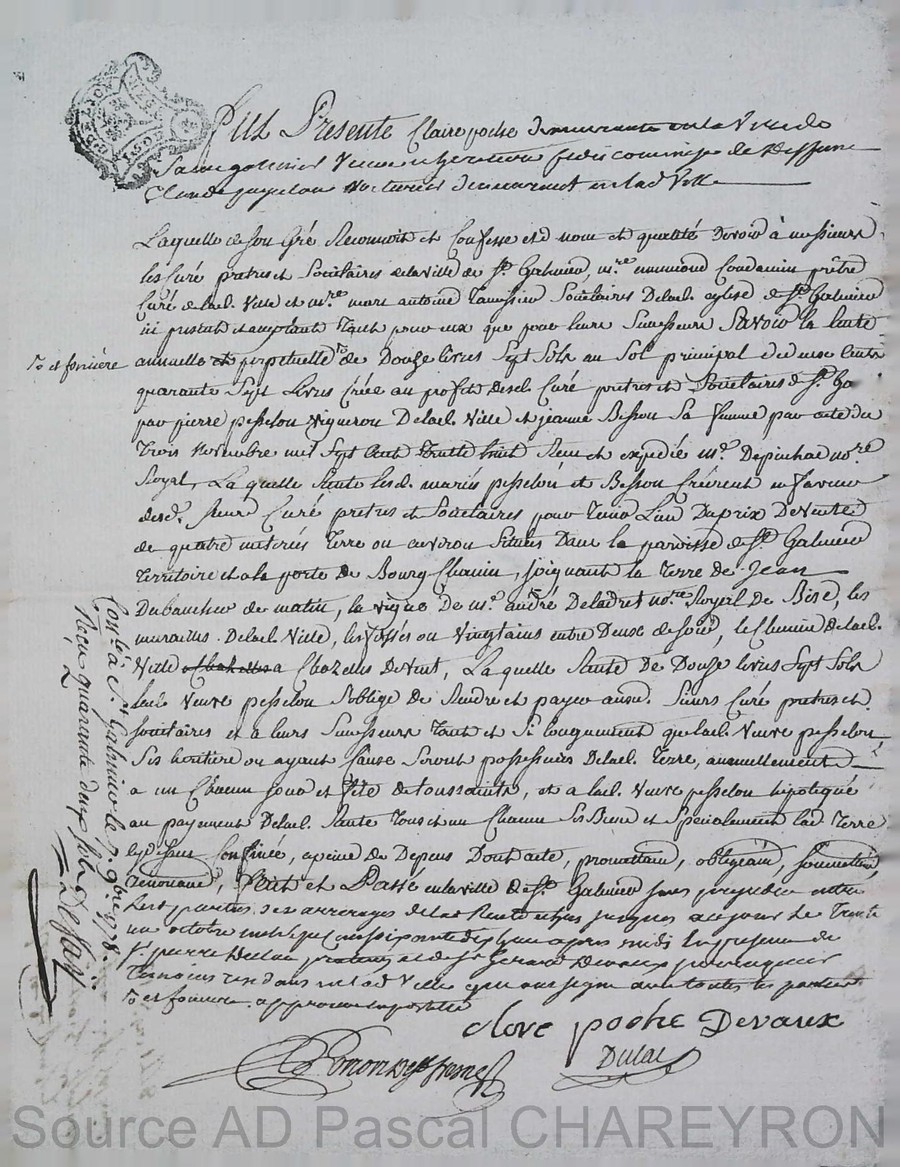 Fut Presente Claire poche demeurante en la Ville de
Saint galmier Veuve et heritiere fideicommise de deffunt
Claude peyselon Voiturier demeurant en lad Ville
Laquelle de son Gré Reconnoit et Confesse esd. nom et qualité Devoir à messieurs
les Curé pretres et Societaires de la Ville de St. Galmier, mre. Condamin prêtre
Curé de lad. Ville et mre marc antoine Societaires Delad. eglise de St. Galmier
ici present et acceptant tant pour eux que pour leurs Successeurs Savoir la Rente
annuelle et perpetuelle de Douze livres Sept Sols au Sol principal de deux Cents
ↄ et fonciere
quarante Sept Livres Créé au profit desd. Curé pretres et Societaires de St. Ga
par pierre pesselon Vigneron Delad. Ville et jeanne Besson Sa femme par acte du
Trois Novembre mil Sept Cent Trente huit Reçu et expedié Me. Depinhac nore.
Royal, La quelle Rente lesd. mariés pesselon et Besson Créerent en faveur
desd. Sieurs Curé pretres et Societaires pour Tenir Lieu Du prix De Vente
de quatre meterés Terre ou environ Situés Dans la paroisse de St. Galmier
Territoire et a la porte de Bourg Chanin, joignant la Terre de Jean
Dubancheu de matin, la Vigne De me. andré Deladret nore. Royal De Bise, les
murailles Delad. Ville, les fossés ou Vingtains entre Deux de soir, le Chemin delad.
Ville Chazelles a Chazelles De Vent, La quelle Rente De Douze livres Sept Sols
lad. Veuve pesselon s'oblige De Rendre et payer auxd. Sieurs Curé pretres et
Societaires et a leurs Successeurs Tant et Si longuement que lad. Veuve pesselon
Ses heritiers ou ayant Cause Seront possesseurs Delad. Terre, annuellement
a un Chacun jour et fête de toussaints, et a lad. Veuve pesselon hipotequé
au payement Delad. Rente Tous et un Chacun Ses Biens et Specialement lad Terre
cy dessus Confinée, a peine de Depens Dont acte, promettant, obligeant, Soumettant,
Renonceant, Fait et Passé en la Ville de St. Galmier sans prejudice entre
lesd. parties des arrerages de lad Rente echus jusques a ce jour Le Trente
un octobre mil Sept Cens Soixante dix huit apres midi En presence de
Sr. pierre Dulac praticien et de Sr. Gerard Devaux
Temoins residans en lad Ville qui ont signé avec toutes les parties
ↄ et fonciere approuvé
clere poche Devaux
Dulac
Conlé. à St. Galmier le 7. 9bre 1778.
Reçu quarante deux sols
Source AD Pascal CHAREYRON